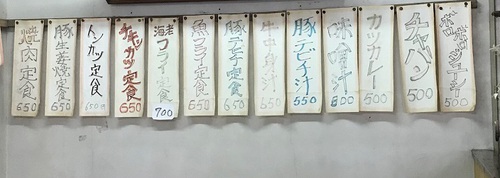 焼肉定食 650
豚生姜焼定食 650
トンカツ定食 650
チキンカツ定食 650
海老フライ定食 700
魚フライ定食 650
豚デビチ定食 650
牛中身汁 650
豚デビチ汁 550
味噌汁 600
カツカレー 500
チャーハン 500
500